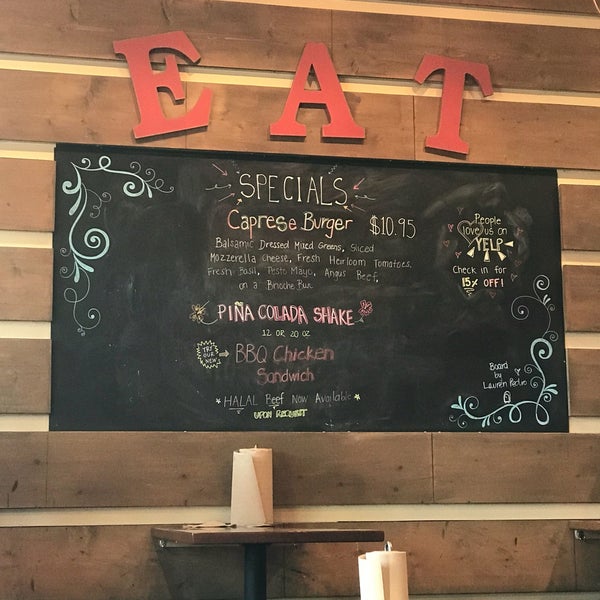 EAT
SPECIALS
Caprese Burger $10.95
Balsamic Dressed Mixed Greens, Sliced
Mozzerella Cheese, Fresh Heirloom Tomatoes,
Fresh Basil, Pesto Mayo, Angus Beef,
on a Brioche Bun
PIÑA COLADA SHAKE
12 OR 20 OZ
TRY
OUR
NEW
BBQ Chicken
Sandwich
HALAL Beef Now Available
UPON REQUEST
People
love us on
YELP
Check in for
15% OFF!
Board
by
Lauren